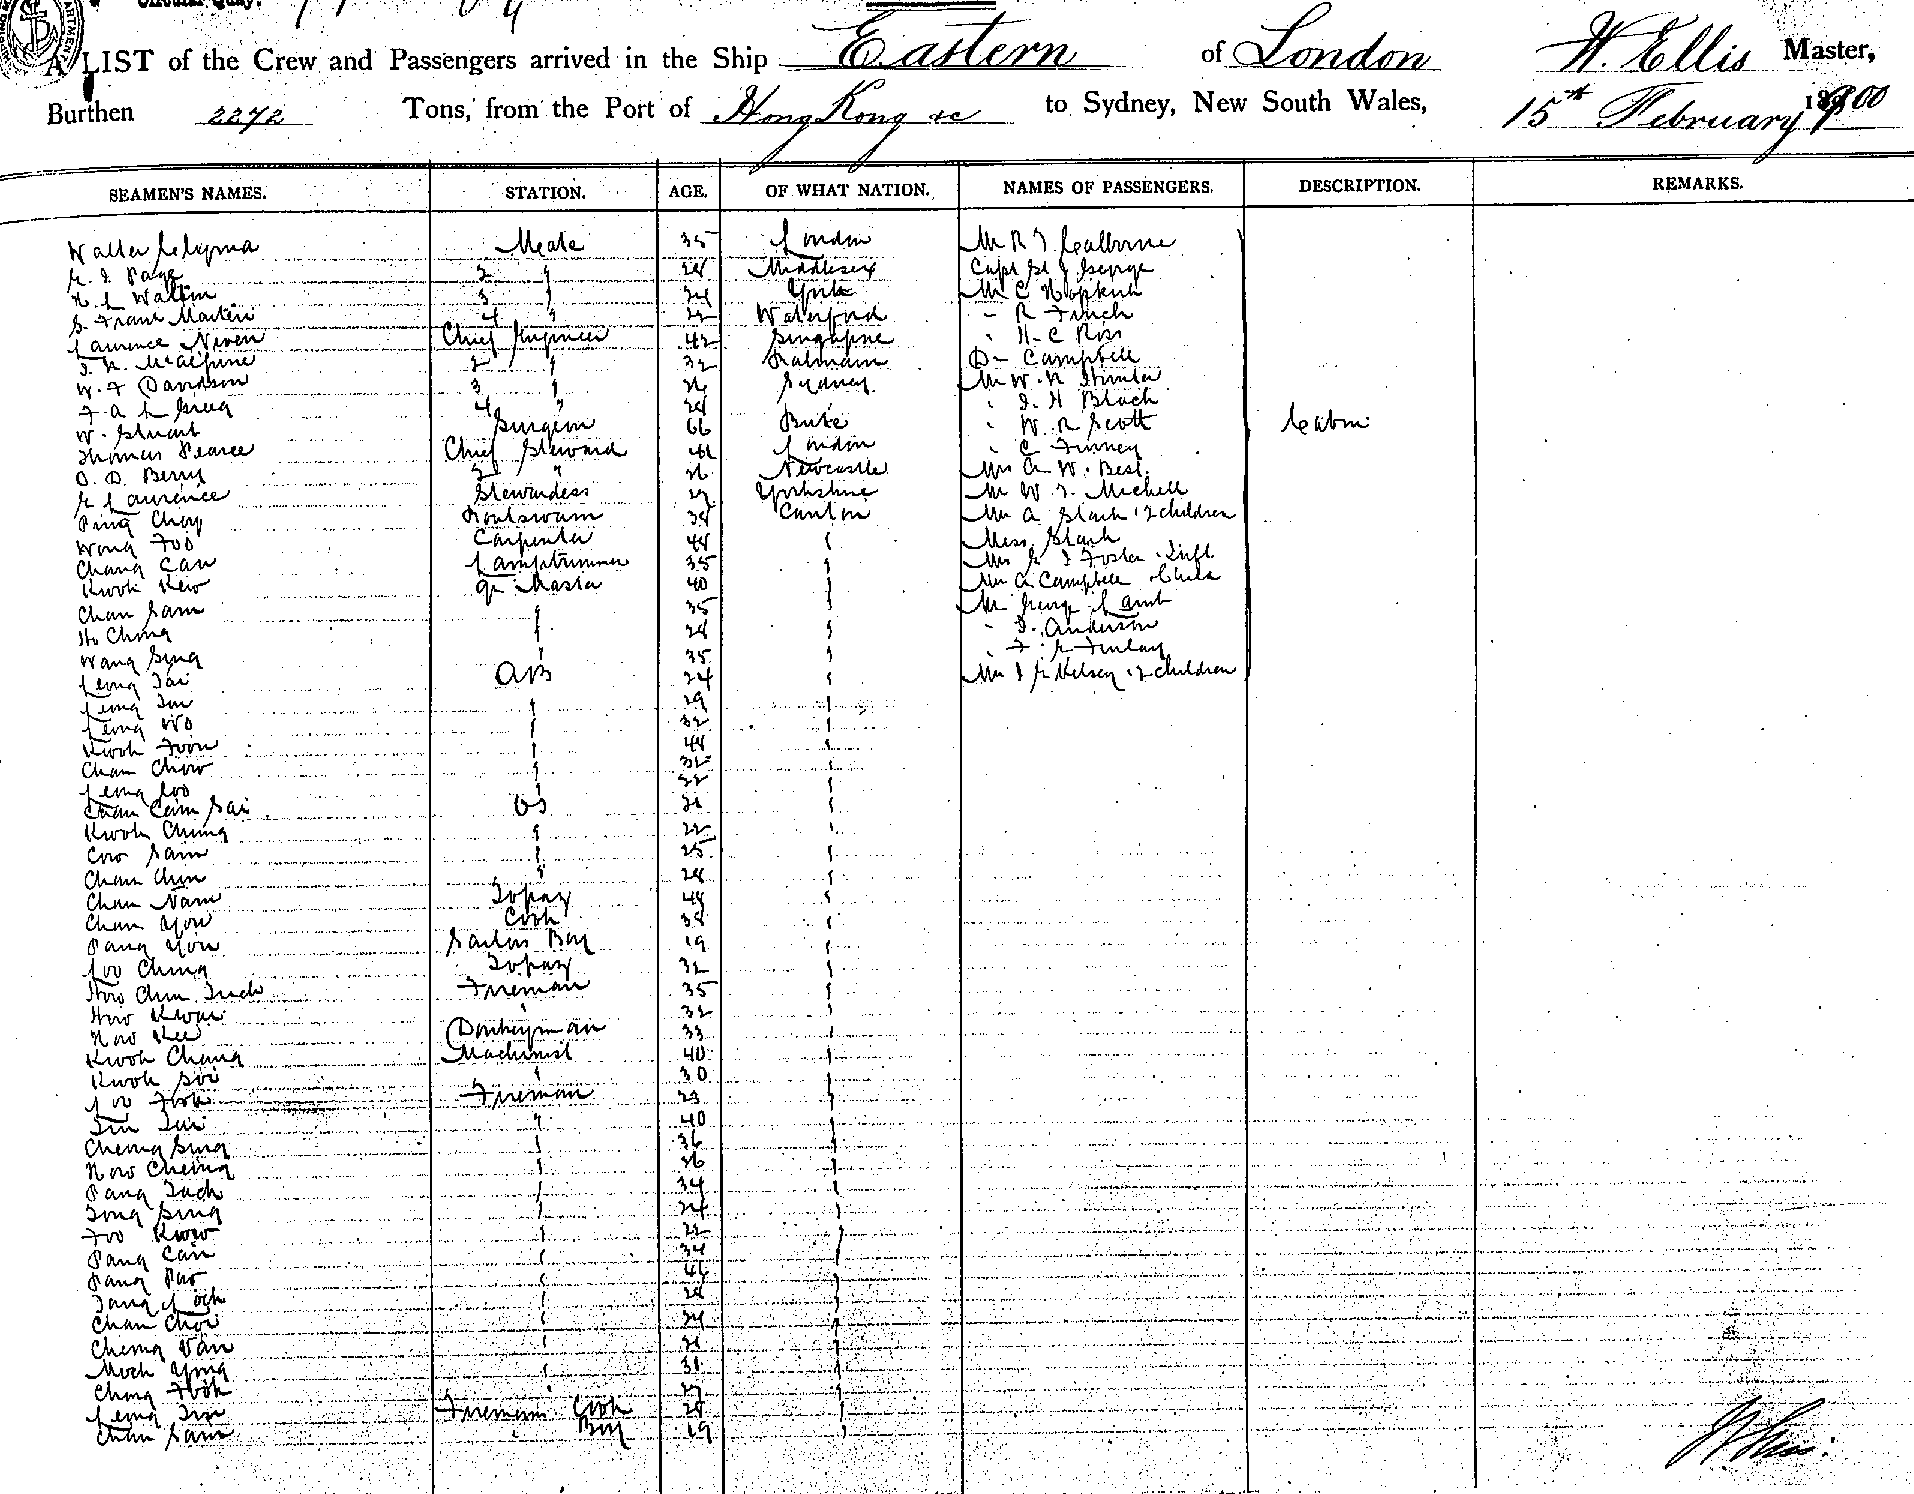 Circular Quay.
A LIST of the Crew and Passengers arrived in the Ship Eastern of London W. Ellis Master,
Burthen 2272 Tons, from the Port of Hong Kong &c to Sydney, New South Wales, 15th February 1900
SEAMEN'S NAMES. STATION. AGE. OF WHAT NATION. NAMES OF PASSENGERS. DESCRIPTION. REMARKS.
Walter Mate 35 London Mr R J
Page 2 " 28 Middlesex Capt George
3 " 24 York Mr C Hopkins
Frank Martin 4 " 22 Waterford " R Finch
Laurence Niven Chief Engineer 42 Singapore " H. C Ross
McAlpine 2 " 32 Dr Campbell
W. F Davidson 3 " 26 Sydney Mr W. R Hunter
F A L Greig 4 " 28 " J. H Black
W. Stuart Surgeon 66 Bute " W. R Scott Cabin
Thomas Pearce Chief Steward 41 London " C Finney
O. D. Berry 2d " 26 Newcastle Mrs A. W. Best.
Laurence Stewardess 27 Yorkshire Mr W. J. Michell
Ping Choy 38 Canton Mrs A Stark & 2 children
Wong Foo Carpenter 48 " Miss Stark
Chang Can Lamptrimmer 35 " Mrs Foster & Inft.
Kwok Kew Qr Master 40 " Mrs A Campbell & Child
Chan Sam " 35 " Mr George Lamb
Ho Ching " 28 " " J. Anderson
Wang Sing " 35 " " F. Finlay
Leong Tai AB 24 " Mrs J Kelsey & 2 children
Leong " 29 "
Leong Wo " 32 "
Kwok Foon " 48 "
Chan Chow " 32 "
Leong " 22 "
Chan Cam Sai OS 21 "
Kwok Ching " 22 "
Cow Sam " 25 "
Chan Chun " 28 "
Chan Nam Topaz 48 "
Chan You Cook 38 "
Pang You Sailors Boy 19 "
Loo Ching Topaz 32 "
How Chun Tuck Fireman 35 "
How Kwai " 32 "
How Kee Donkeyman 33 "
Kwok Chang Machinist 40 "
Kwok Soi " 30 "
Loo Fook Fireman 23 "
" 40 "
Cheong Sing " 36 "
How Cheong " 26 "
Pang Tuck " 34 "
Tong Sing " 24 "
Foo Kwow " 22 "
Pang Can " 34 "
Pang Pao " "
Tang Lock " 28 "
Chan Choi " "
Cheong Van " 21 "
Mock Yong " 31 "
Ching Fook " 27 "
Leong Firemans Cook 28 "
Chan Sam " Boy 19 "